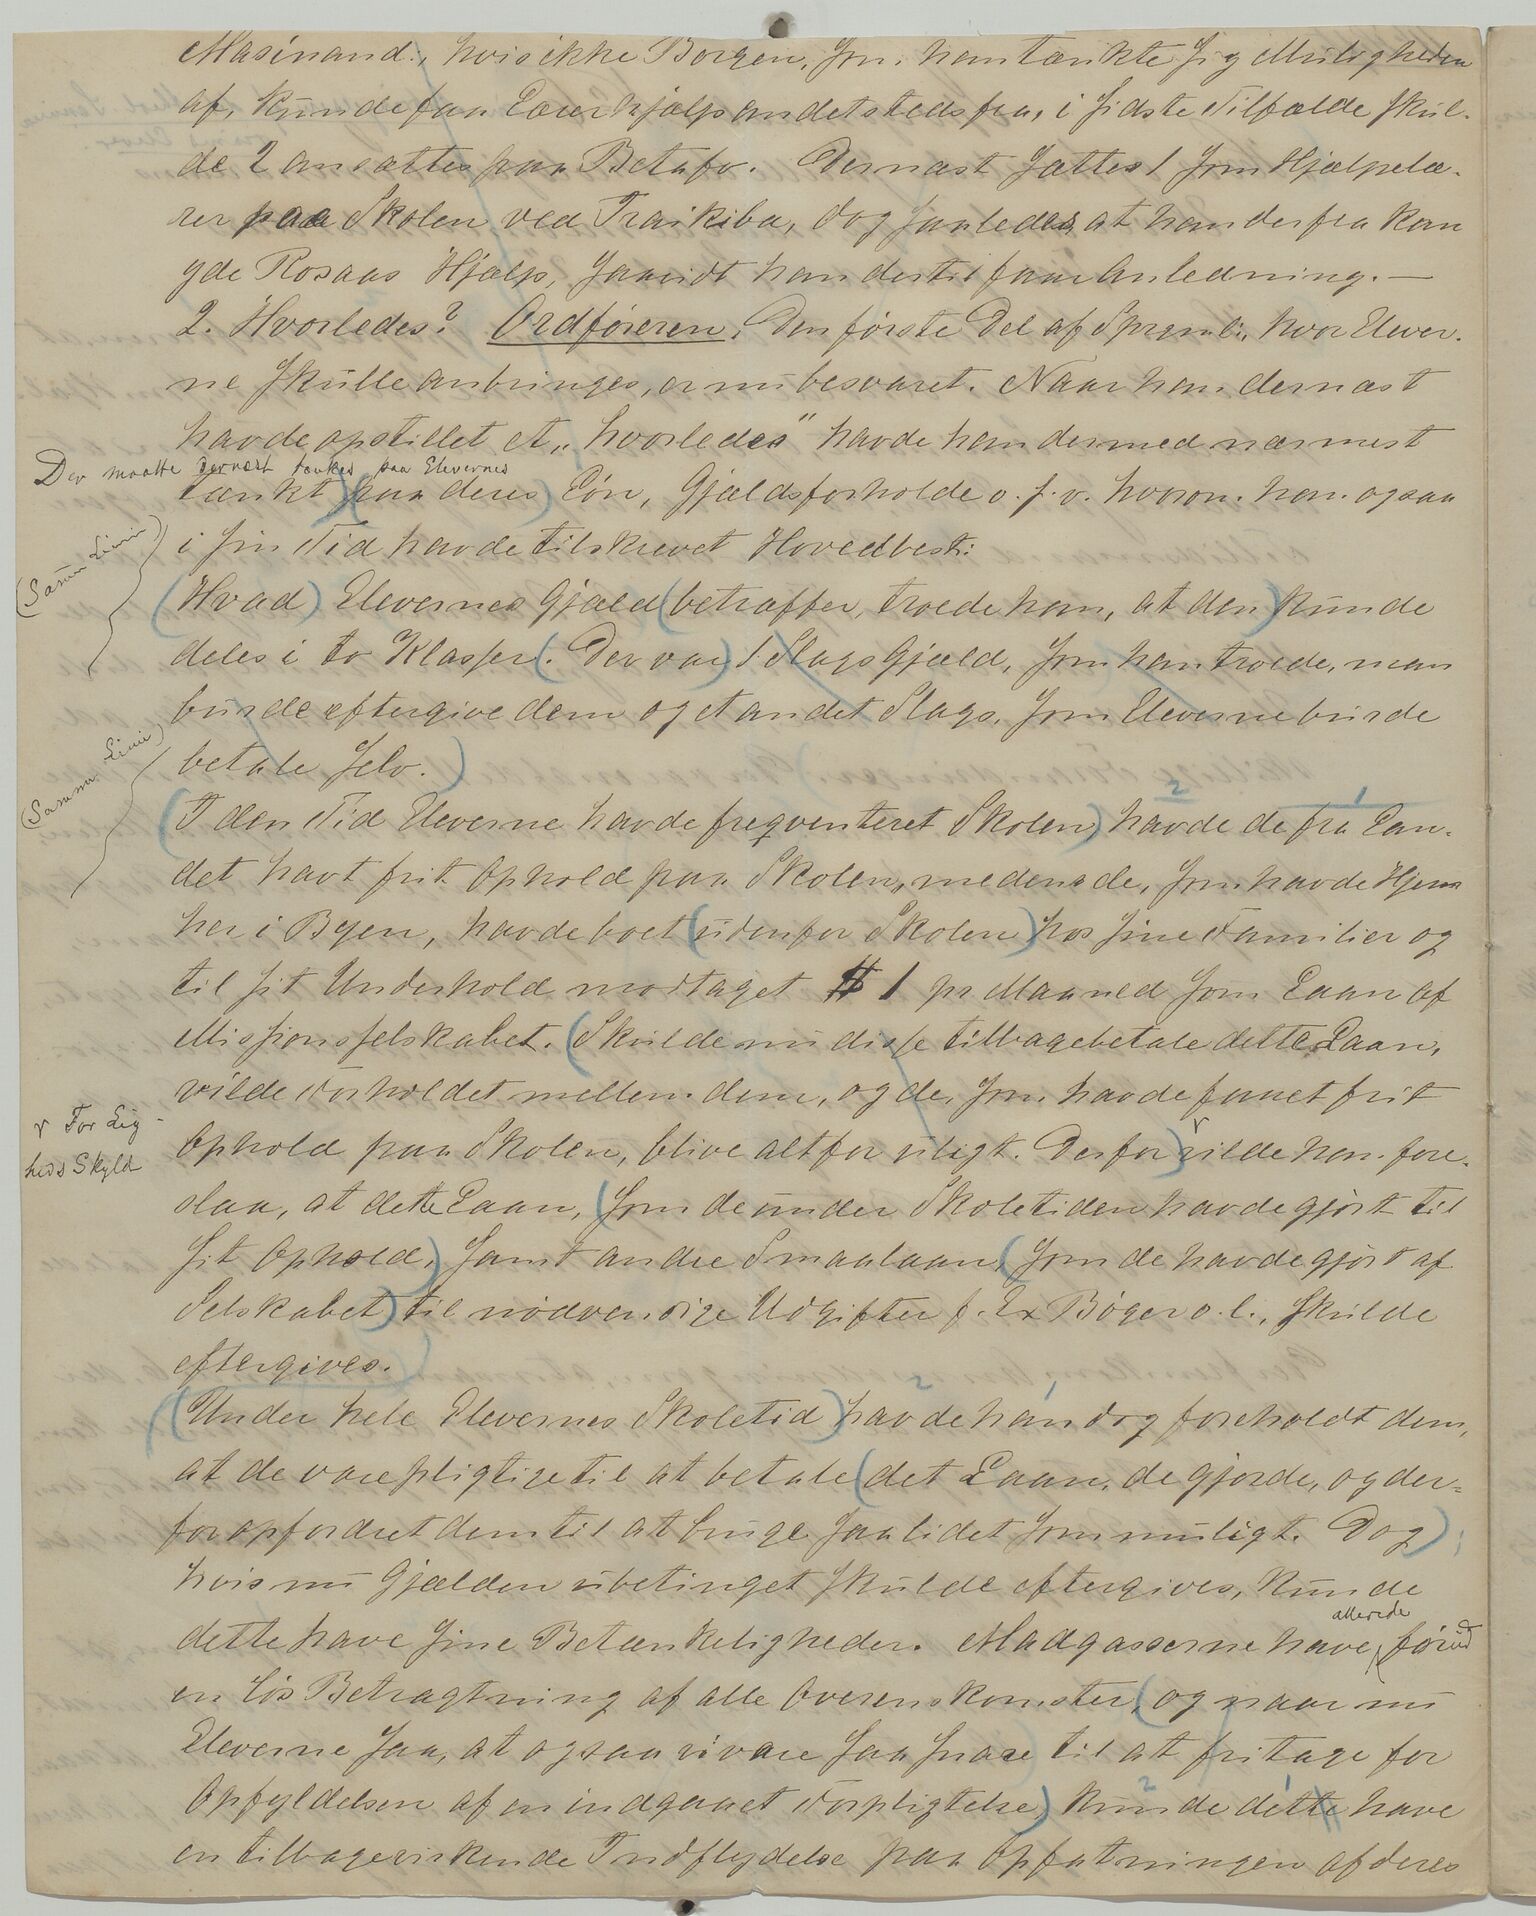 Masinand., hvis ikke Borgen, som han tænkte sig Muligheden
af, kunde faa Lærerhjælp andetstedsfra, i sidste Tilfælde skul-
de 2 ansættes paa Betafo. Dernæst sættes 1 som Hjælpelæ-
rer paa Skolen ved Fraikiba, dog saaledes at han derfra kan
yde Rosaas Hjælp, saavidt han dertil faar Anledning. —
2. Hvorledes? Ordføreren: Den første Del af Sprgsm., hvor Elever-
ne skulle anbringes, er nu besvaret. Naar han dernæst
havde opstillet et "hvorledes" havde han dermed nærmest
Der maatte dernæst tænkes paa Elevernes
tænkt paa deres Løn, Gjældsforholde o. s. v. hvorom han ogsaa
i sin Tid havde tilskrevet Hovedbest:
(Samme Linie)
(Hvad) Elevernes Gjæld (betræffer, troede han, at den) kunde
deles i to Klasser(. Der var) 1 Slags Gjæld, som han troede, man
burde eftergive dem og et andet Slags, som Eleverne burde
betale selv.)
(Samme Linie)
(I den Tid Eleverne havde freqventeret Skolen) havde de fra Lan-
det havt frit Ophold paa Skolen, medens de, som havde Hjem
her i Byen, havde boet (udenfor Skolen) hos sine Familier og
til sit Underhold modtaget $ 1 pr Maaned som Laan af
Missionsselskabet. (Skulde nu disse tilbagebetale dette Laan,
vilde Forholdet mellem dem, og de, som havde faaet frit
v For Lig-
heds Skyld
Ophold paa Skolen, blive altfor uligt. Derfor) v vilde han fore-
slaa, at dette Laan, (som de under Skoletiden havde gjørt til
sit Ophold,) samt andre Smaalaan, (som de havde gjørt af
Selskabet) til nødvendige Udgifter f. Ex Bøger o. l., skulde
eftergives.
(Under hele Elevernes Skoletid) havde han dog foreholdt dem,
at de vare pligtige til at betale (det Laan, de gjorde, og der-
for opfordret dem til at bruge saa lidet som muligt. Dog);
hvis nu Gjælden ubetinget skulde eftergives, kunde
dette have sine Betænkeligheder. Madgasserne have allerede forud
en løs Betragtning af alle Overenskomster, (og naar nu
Eleverne saa, at ogsaa vi vare saa snare til at fritage for
Opfyldelsen af en indgaaet Forpligtelse) kunde dette have
en tilbagevirkende Indflydelse paa Opfatningen af deres